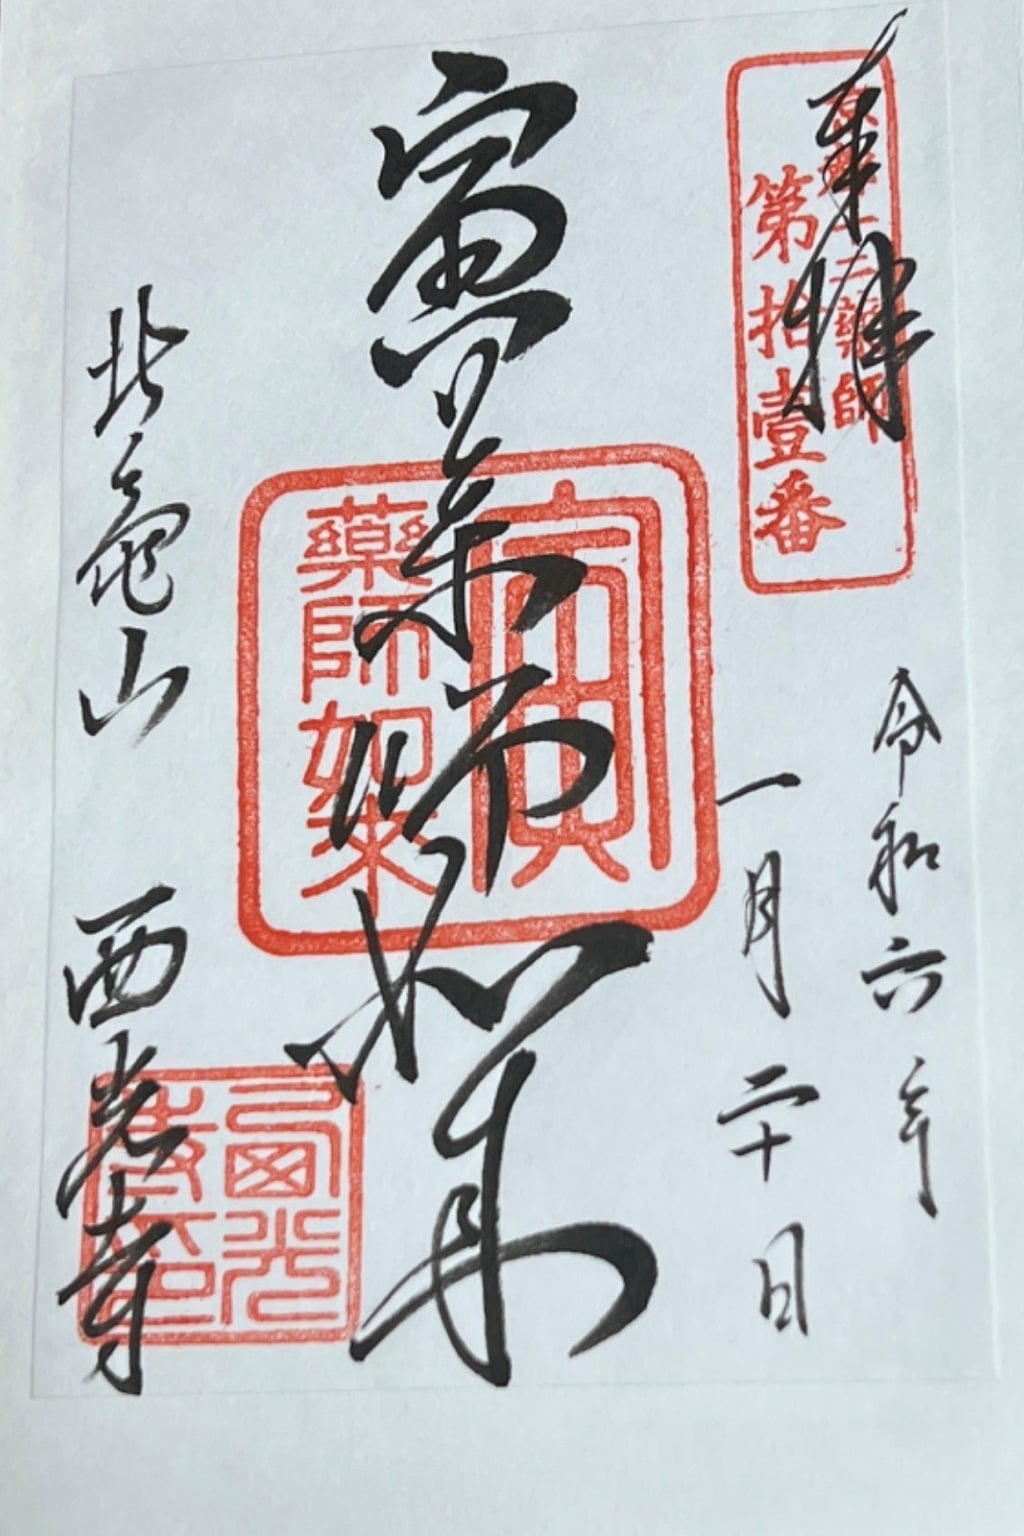 奉拝
京都十二薬師
第拾壹番
令和六年
一月二十日
寅薬師如来
寅
藥師如来
北亀山 西光寺
西光寺印